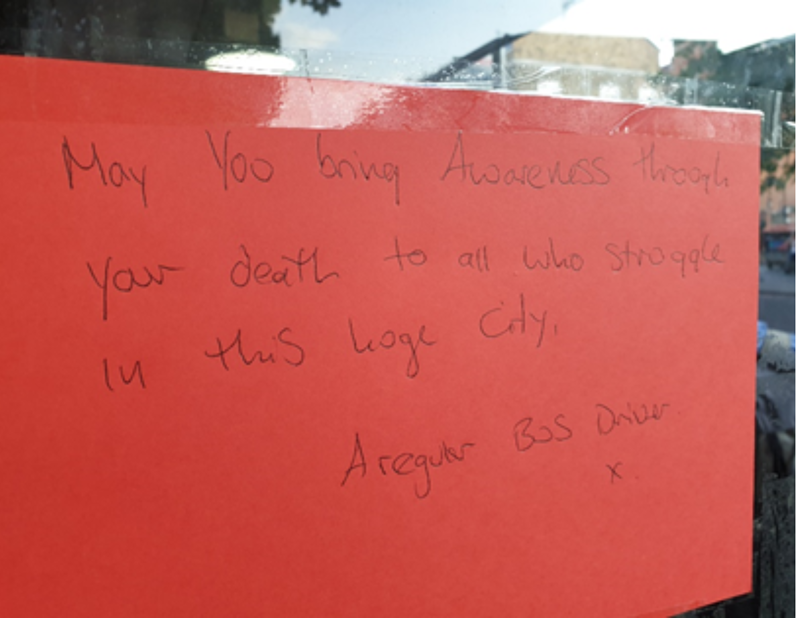 May You bring Awareness through
your death to all who struggle
in this huge City.
A regular Bus Driver.
x.